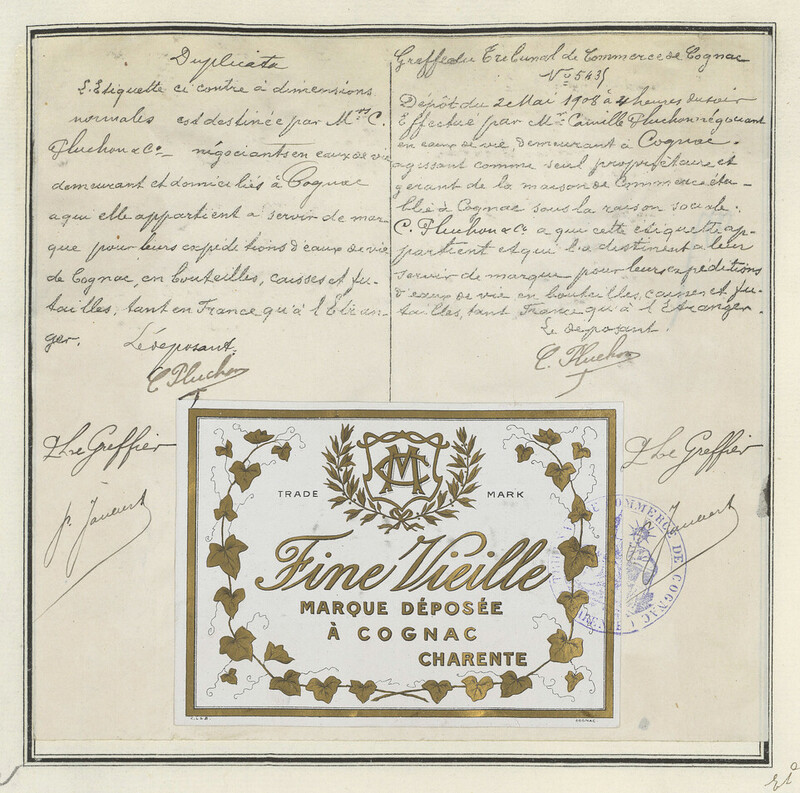 Duplicata
L'Etiquette ci contre à dimensions
normales est destinée par Mrs C.
Pluchon & Co négociants en eaux de vie
demeurant et domiciliés à Cognac
a qui elle appartient a servir de mar-
que pour leurs expéditions d'eaux de vie
de Cognac, en bouteilles, caisses et fu-
tailles, tant en France qu'à l'Etran-
ger.
Le deposant.
C. Pluchon
Greffe du Tribunal de Commerce de Cognac
No 543
Dépôt du 2 Mai 1908 à 4 heures du soir
Effectué par Mr Camille Pluchon négociant
en eaux de vie, demeurant à Cognac.
agissant comme seul propriétaire et
gérant de la maison de Commerce éta-
blie à Cognac sous la raison sociale.
C. Pluchon & Co a qui cette étiquette ap-
partient et qui la destinent a leur
servir de marque pour leurs expéditions
d'eaux de vie en bouteilles, caisses et fu-
tailles, tant France qu'à l'Etranger.
Le deposant.
C. Pluchon
Le Greffier
Le Greffier
TRADE MARK
Fine Vieille
MARQUE DÉPOSÉE
À COGNAC
CHARENTE
COGNAC
COMMERCE DE COGNAC